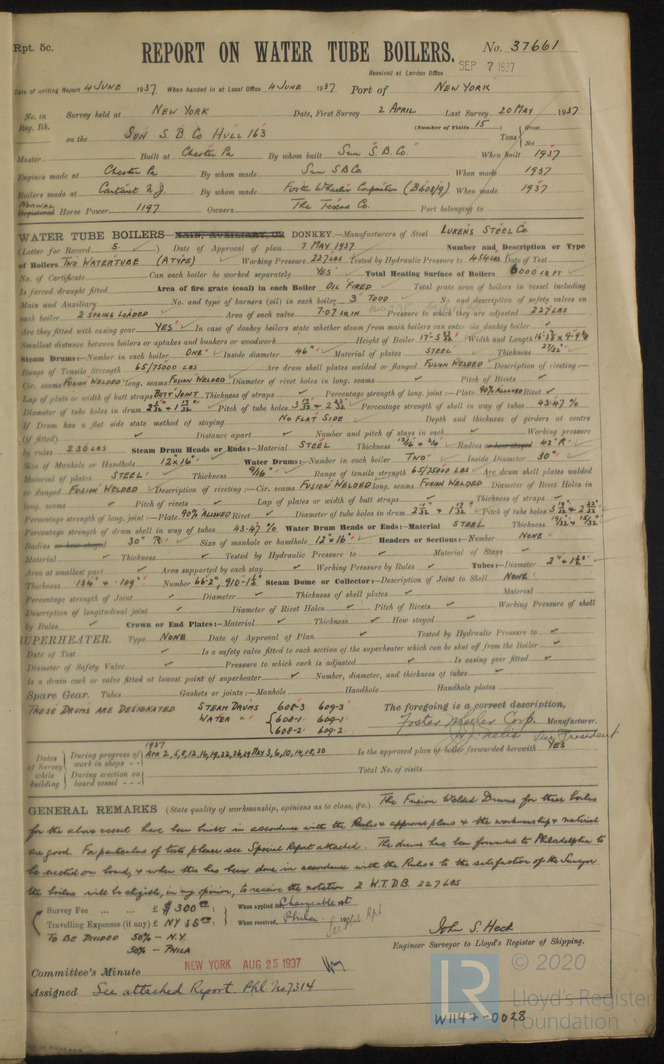 Rpt. 5c.
REPORT ON WATER TUBE BOILERS.
No. 37661
Received at London Office SEP 7 1937
Date of writing Report 4 JUNE 1937 When handed in at Local Office 4 JUNE 1937 Port of NEW YORK
No. in Survey held at NEW YORK Date, First Survey 2 APRIL Last Survey 20 MAY 1937
Reg. Bk. (Number of Visits 15)
on the SUN S.B. Co HULL 163 Tons Gross Net
Master Built at Chester Pa By whom built Sun S.B. Co. When built 1937
Engines made at Chester Pa By whom made Sun SBCo When made 1937
Boilers made at Carteret N.J. By whom made Foster Wheeler Corporation (B608/9) When made 1937
NORMAL Registered Horse Power 1197 Owners The Texas Co. Port belonging to
WATER TUBE BOILERS MAIN, AUXILIARY, OR DONKEY.—Manufacturers of Steel LUKENS STEEL Co
(Letter for Record S) Date of Approval of plan 7 MAY 1937 Number and Description or Type
of Boilers TWO WATERTUBE (A TYPE) Working Pressure 227 LBS Tested by Hydraulic Pressure to 454 LBS Date of Test
No. of Certificate Can each boiler be worked separately YES Total Heating Surface of Boilers 6000 SQ FT
Is forced draught fitted Area of fire grate (coal) in each Boiler OIL FIRED Total grate area of boilers in vessel including
Main and Auxiliary No. and type of burners (oil) in each boiler 3 TODD No. and description of safety valves on
each boiler 2 SPRING LOADED Area of each valve 7.07 SQ IN Pressure to which they are adjusted 227 LBS
Are they fitted with easing gear YES In case of donkey boilers state whether steam from main boilers can enter the donkey boiler
Smallest distance between boilers or uptakes and bunkers or woodwork Height of Boiler Width and Length
Steam Drums:—Number in each boiler ONE Inside diameter 46" Material of plates STEEL Thickness 27/32"
Range of Tensile Strength 65/75000 LBS Are drum shell plates welded or flanged FUSION WELDED Description of riveting:—
Cir. seams FUSION WELDED long. seams FUSION WELDED Diameter of rivet holes in long. seams Pitch of Rivets
Lap of plate or width of butt straps BUTT JOINT Thickness of straps Percentage strength of long. joint:—Plate 90% ALLOWED Rivet
Diameter of tube holes in drum Pitch of tube holes Percentage strength of shell in way of tubes 43.47 %
If Drum has a flat side state method of staying NO FLAT SIDE Depth and thickness of girders at centre
(if fitted) Distance apart Number and pitch of stays in each Working pressure
by rules 230 LBS Steam Drum Heads or Ends:—Material STEEL Thickness 13/16" + 3/4" Radius or how stayed 42" R
Size of Manhole or Handhole 12×16" Water Drums:—Number in each boiler TWO Inside Diameter 30"
Material of plates STEEL Thickness 9/16" Range of tensile strength 65/75000 LBS Are drum shell plates welded
or flanged FUSION WELDED Description of riveting:—Cir. seams FUSION WELDED long. seams FUSION WELDED Diameter of Rivet Holes in
long. seams Pitch of rivets Lap of plates or width of butt straps Thickness of straps
Percentage strength of long. joint:—Plate 90% ALLOWED Rivet Diameter of tube holes in drum Pitch of tube holes
Percentage strength of drum shell in way of tubes 43.47 % Water Drum Heads or Ends:—Material STEEL Thickness 19/32" + 15/32"
Radius or how stayed 30" R Size of manhole or handhole 12"×16" Headers or Sections:—Number NONE
Material Thickness Tested by Hydraulic Pressure to Material of Stays
Area at smallest part Area supported by each stay Working Pressure by Rules Tubes:—Diameter 2" + 1½"
Thickness .134" + .109" Number 66-2", 910-1½" Steam Dome or Collector:—Description of Joint to Shell NONE
Percentage strength of Joint Diameter Thickness of shell plates Material
Description of longitudinal joint Diameter of Rivet Holes Pitch of Rivets Working Pressure of shell
by Rules Crown or End Plates:—Material Thickness How stayed
SUPERHEATER. Type NONE Date of Approval of Plan Tested by Hydraulic Pressure to
Date of Test Is a safety valve fitted to each section of the superheater which can be shut off from the Boiler
Diameter of Safety Valve Pressure to which each is adjusted Is easing gear fitted
Is a drain cock or valve fitted at lowest point of superheater Number, diameter, and thickness of tubes
Spare Gear. Tubes Gaskets or joints:—Manhole Handhole Handhole plates
THESE DRUMS ARE DESIGNATED STEAM DRUMS 608-3 609-3 The foregoing is a correct description,
WATER " 608-1 609-1 Foster Wheeler Corp. Manufacturer.
608-2 609-2 Vice President
1937
Dates of Survey while building During progress of work in shops APR 2, 5, 8, 12, 16, 19, 22, 26, 29 MAY 3, 6, 10, 14, 18, 20 Is the approved plan of boiler forwarded herewith YES
During erection on board vessel Total No. of visits
GENERAL REMARKS (State quality of workmanship, opinions as to class, &c.) The Fusion Welded Drums for these boilers
for the above vessel have been built in accordance with the Rules & approved plans & the workmanship & material
are good. For particulars of tests please see Special Report attached. The drums has been forwarded to Philadelphia to
be erected on board, & when this has been done in accordance with the Rules & to the satisfaction of the Surveyor
the boilers will be eligible, in my opinion, to receive the notation 2 W.T.D.B. 227 LBS
Survey Fee £ $300.00 When applied for, Chargeable at
Travelling Expenses (if any) £ NY 15.00 When received, Phila.
TO BE DIVIDED 50% – N.Y.
50% – PHILA
John S. Heck
Engineer Surveyor to Lloyd's Register of Shipping.
Committee's Minute NEW YORK AUG 25 1937
Assigned See attached Report. Phl. No. 7314
© 2020
Lloyd's Register
Foundation
W1147-0028